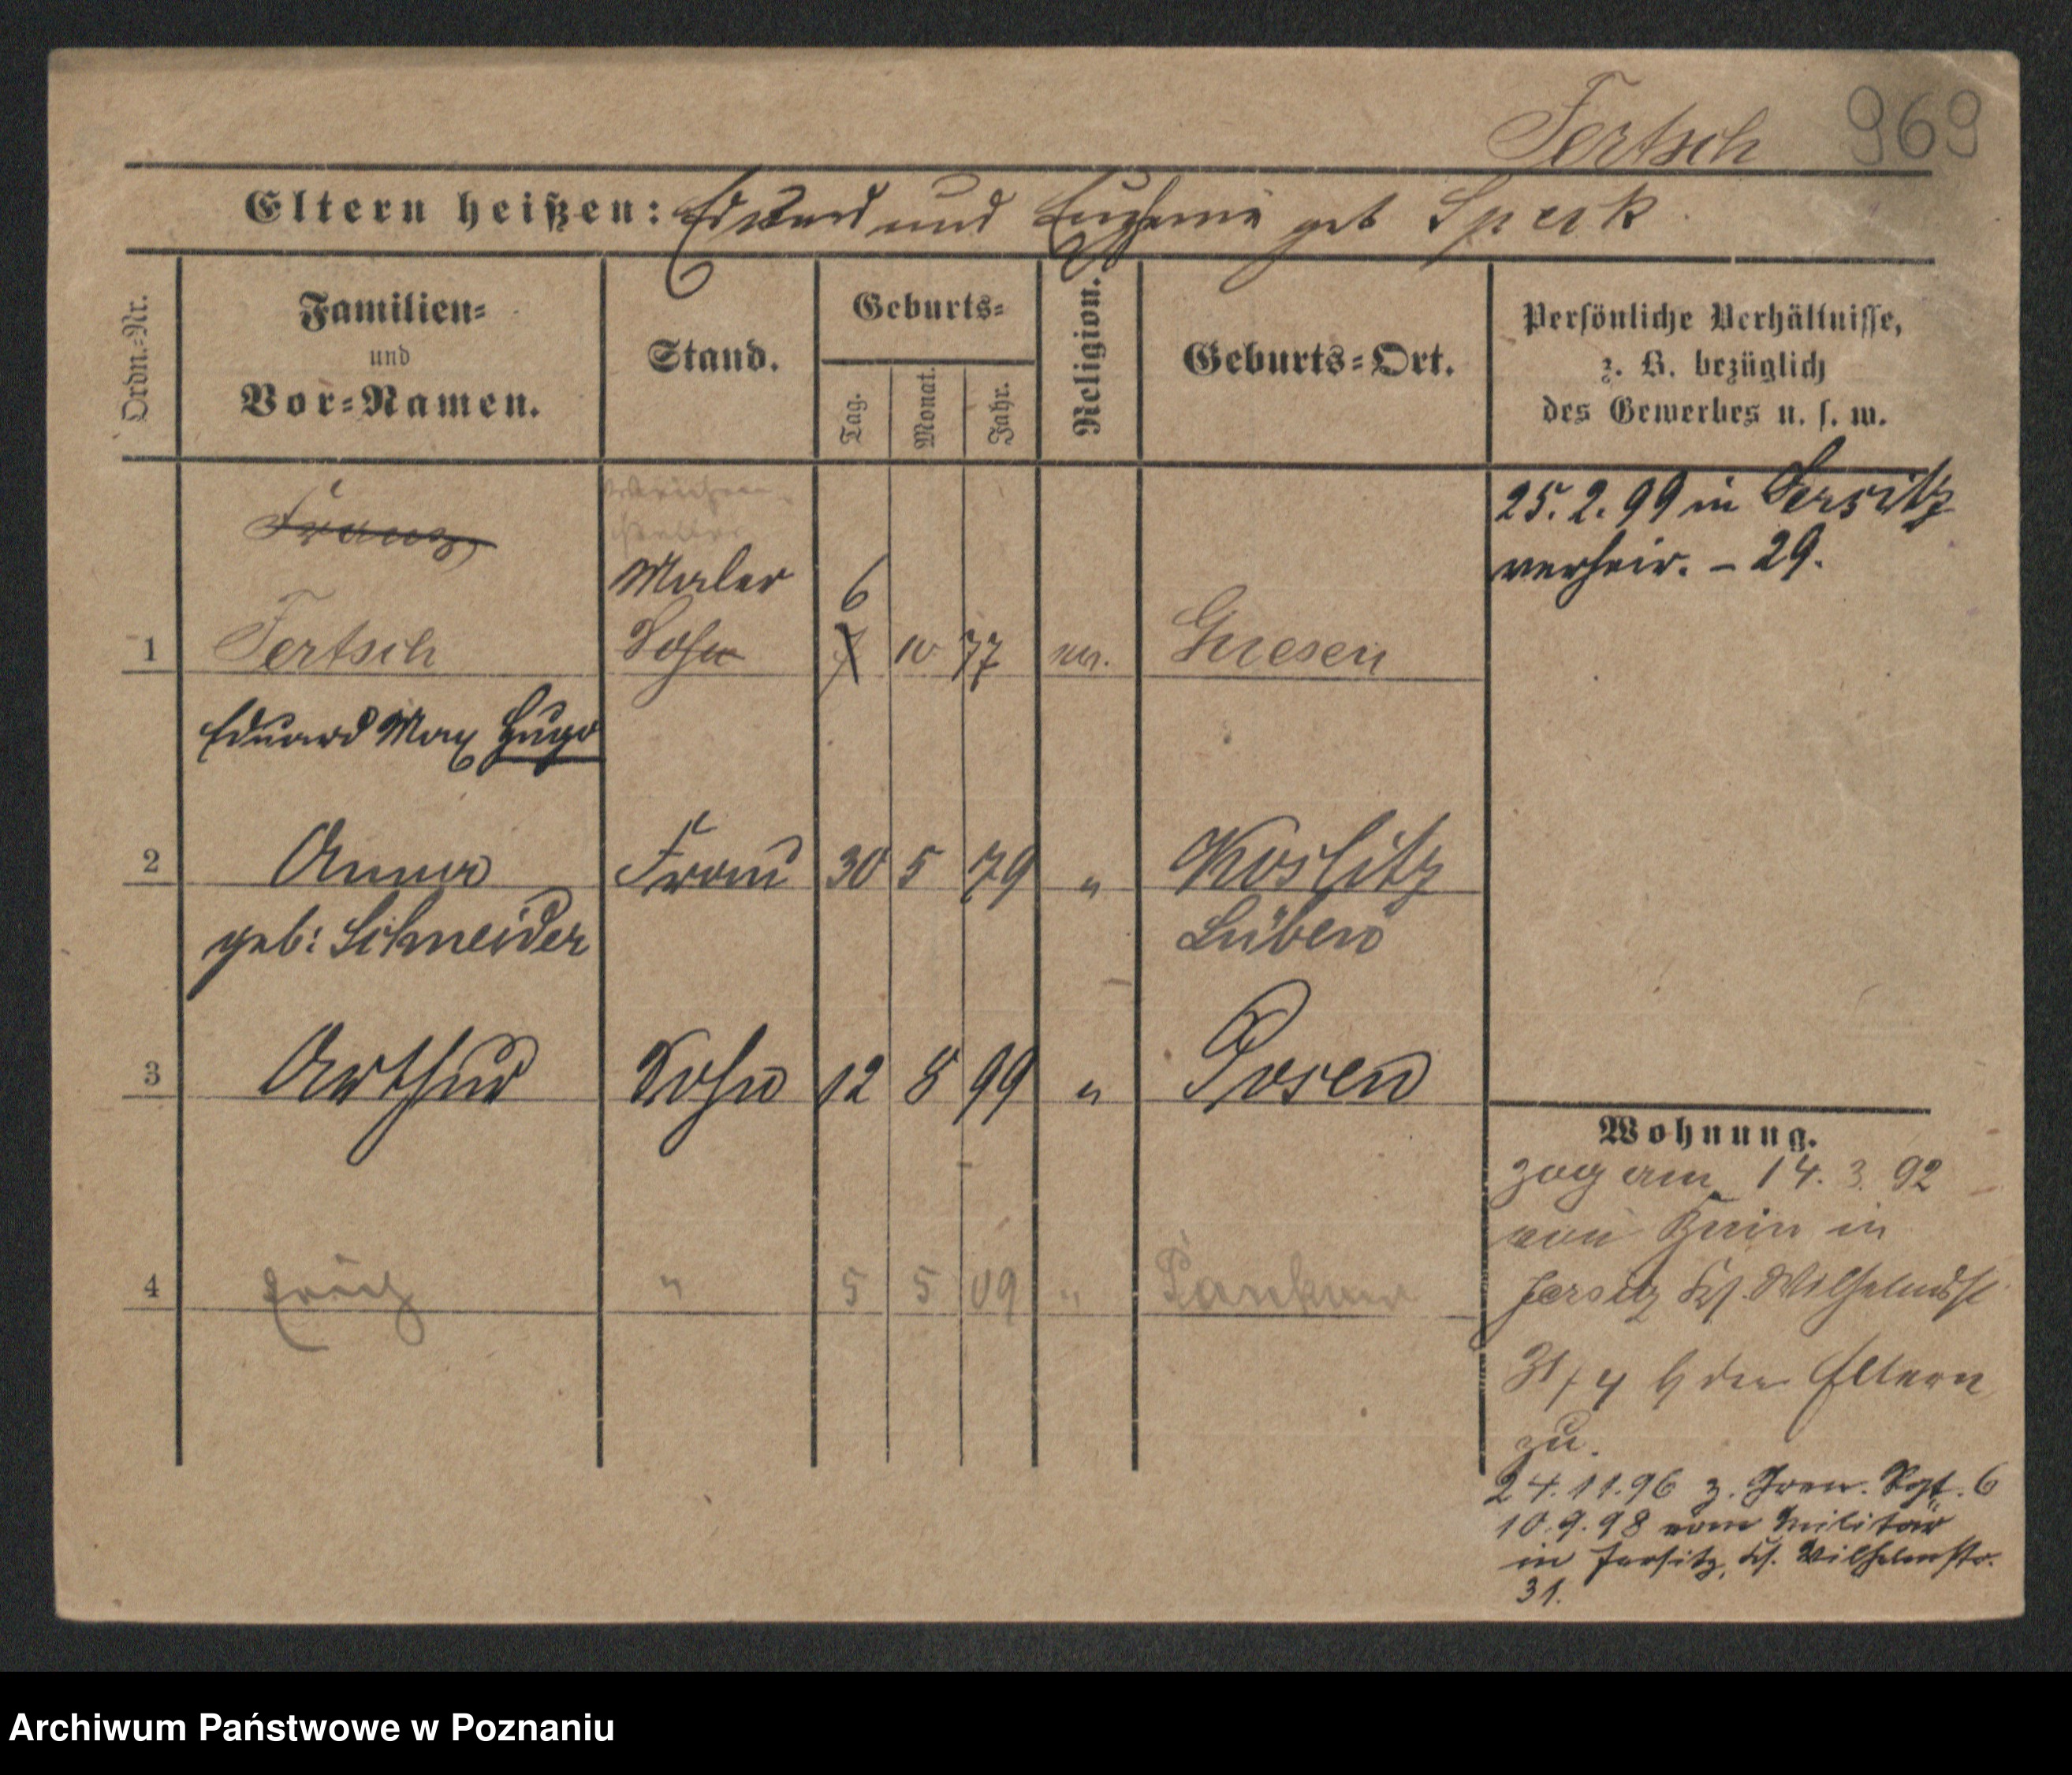 Tertsch 969
Eltern heißen: Eduard und Eugenie geb Speck.
Ordn.-Nr.
Familien- und Vor-Namen.
Stand.
Geburts-
Tag.
Monat.
Jahr.
Religion.
Geburts-Ort.
Persönliche Verhältnisse,
z. B. bezüglich
des Gewerbes u. s. w.
25. 2. 99 in Jersitz
verheir. – 29.
Franz,
Maler
6
1 Tertsch Sohn 7 10 77 ev. Gnesen
Eduard Max Hugo
2 Anna Frau 30 5 79 " Koslitz
geb: Schneider Lüben
3 Arthur Sohn 12 8 99 " Posen
4 Erich " 5 5 09 " Pankow
Wohnung.
zog am 14. 3. 92
von in
Jersitz Ks. Wilhelmst
31/4 b den Eltern
zu.
24. 11. 96 z. Gren. Rgt. 6
10. 9. 98 vom Militär
in Jersitz, Ks. Wilhelmstr.
31.
Archiwum Państwowe w Poznaniu